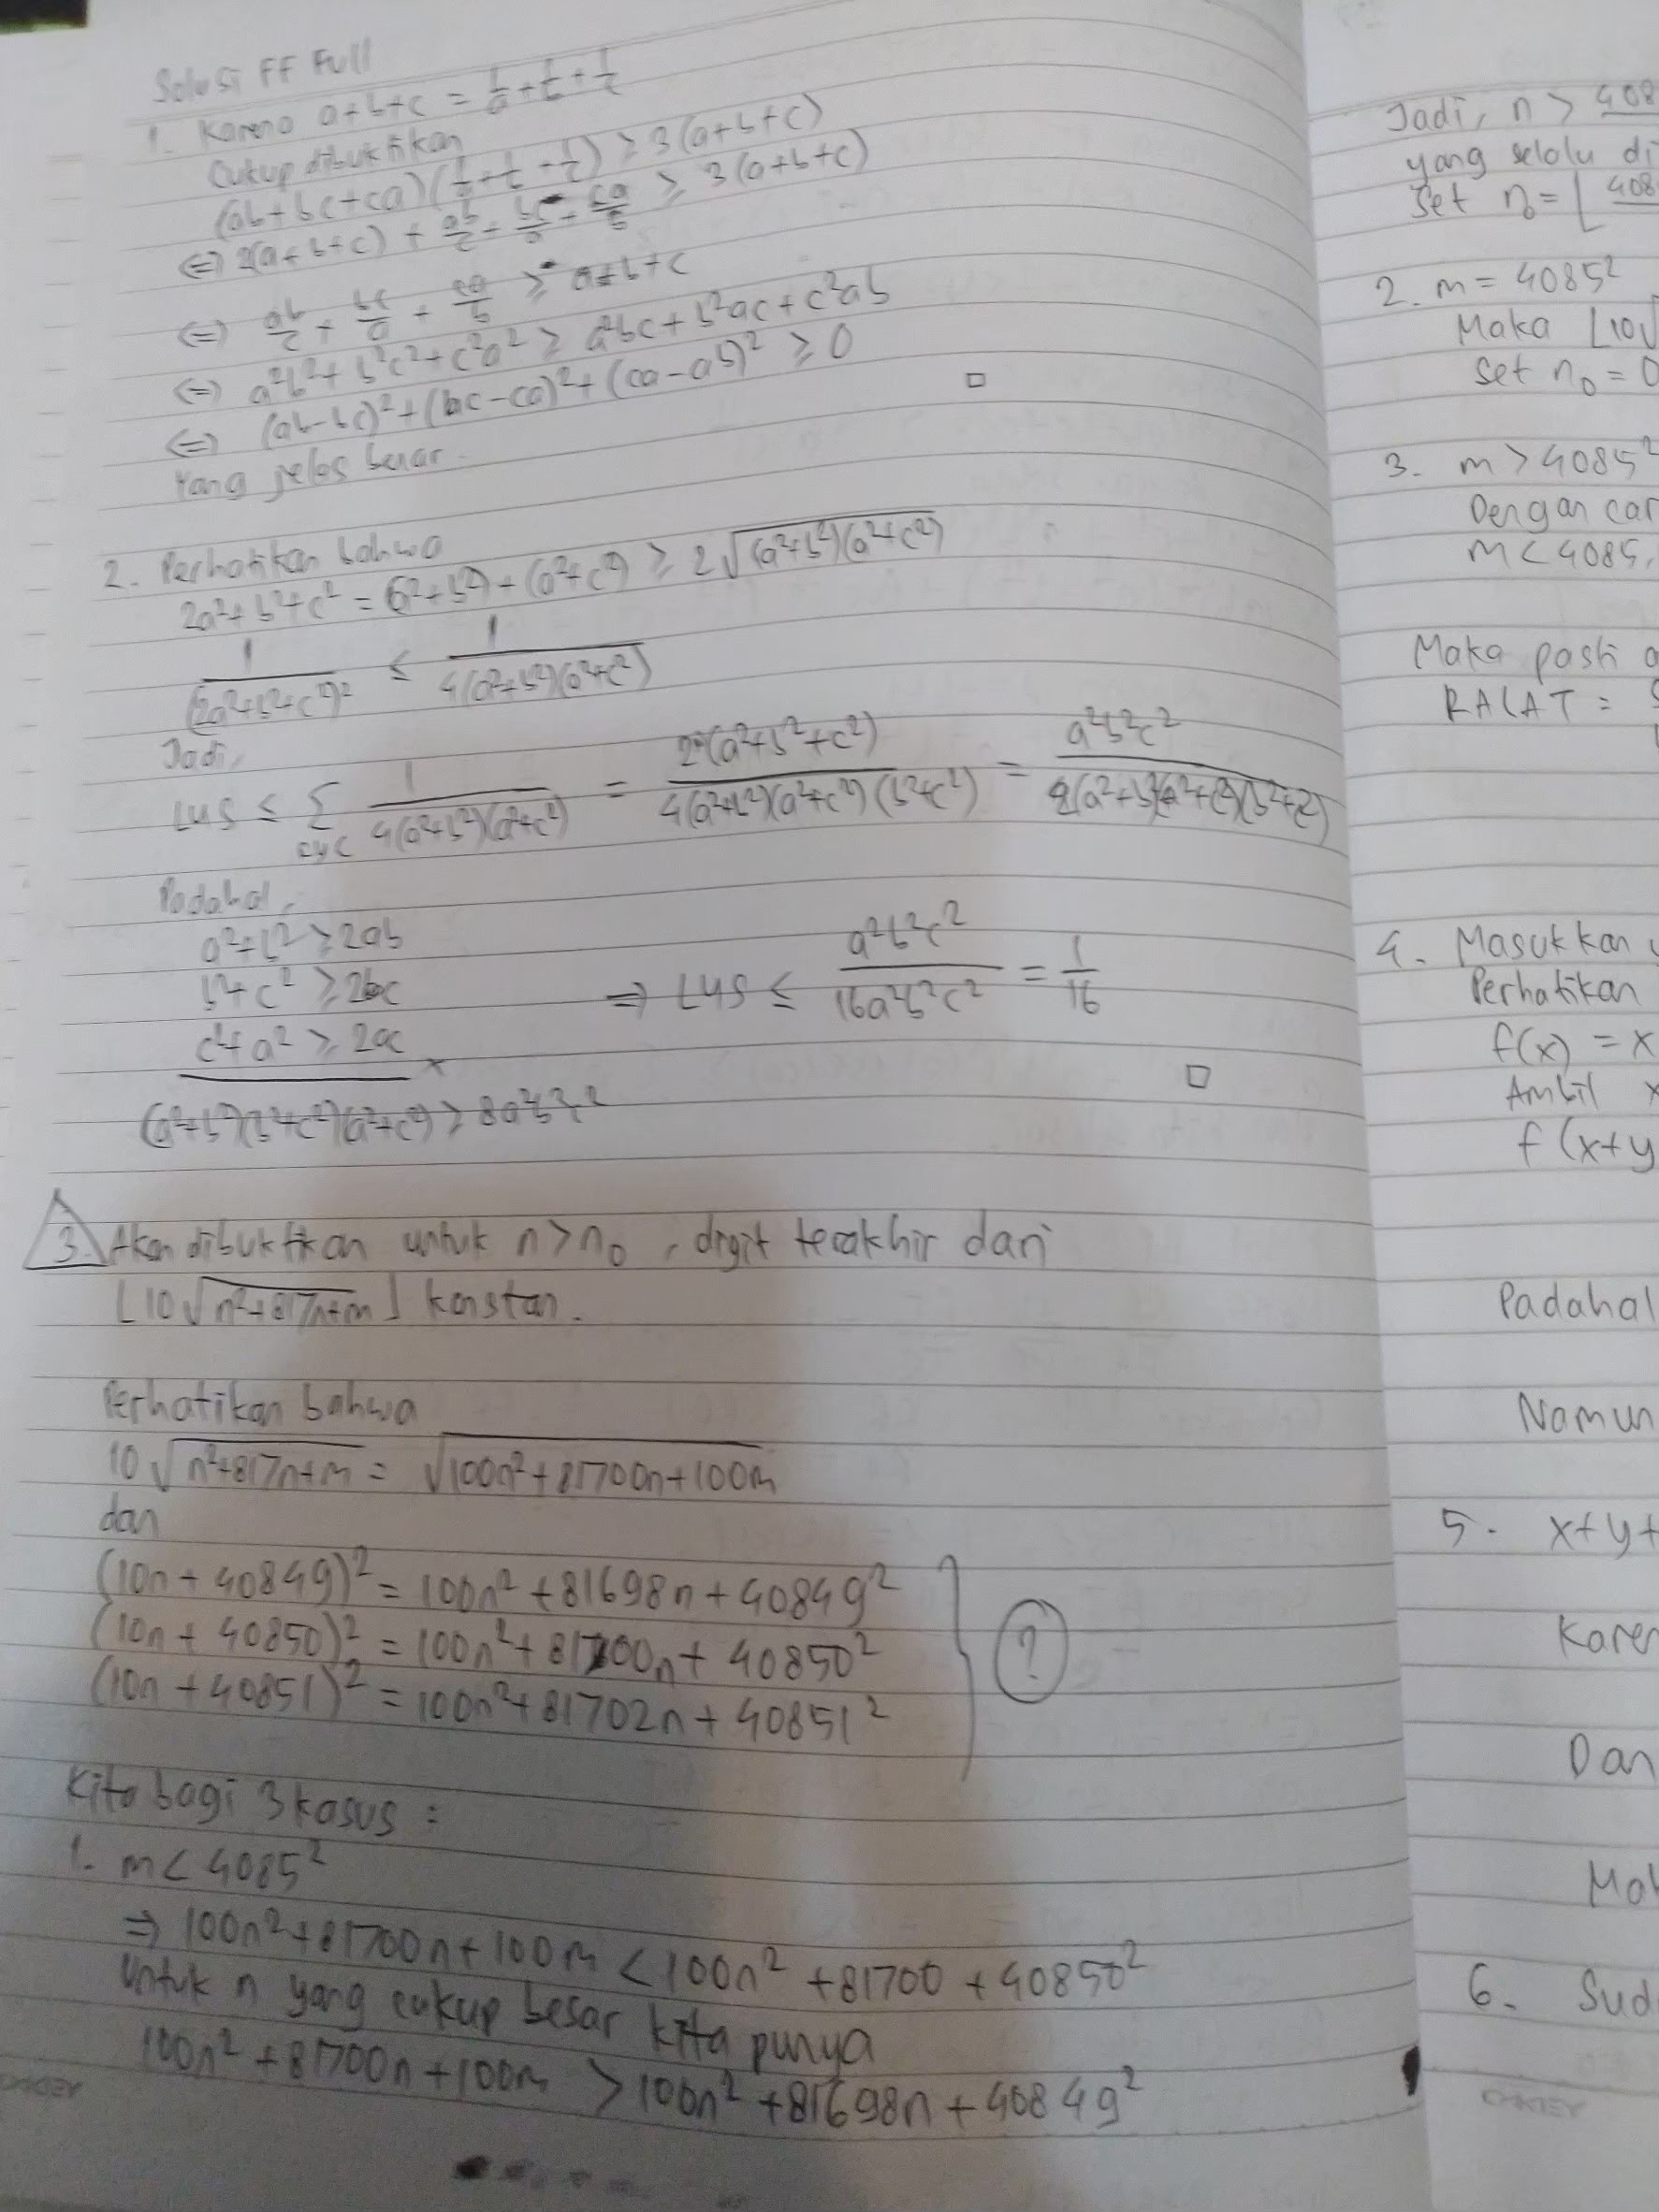 Solusi FF Full
1. Karena a+b+c = 1/a + 1/b + 1/c
Cukup dibuktikan
(ab+bc+ca)(1/a + 1/b + 1/c) ≥ 3(a+b+c)
⇔ 2(a+b+c) + ab/c + bc/a + ca/b ≥ 3(a+b+c)
⇔ ab/c + bc/a + ca/b ≥ a+b+c
⇔ a²b² + b²c² + c²a² ≥ a²bc + b²ac + c²ab
⇔ (ab-bc)² + (bc-ca)² + (ca-ab)² ≥ 0
Yang jelas benar. □
2. Perhatikan bahwa
2a²+b²+c² = (a²+b²)+(a²+c²) ≥ 2√(a²+b²)(a²+c²)
1/(2a²+b²+c²)² ≤ 1/4(a²+b²)(a²+c²)
Jadi,
LHS ≤ Σcyc 1/4(a²+b²)(a²+c²) = 2(a²+b²+c²)/4(a²+b²)(a²+c²)(b²+c²) = a²b²c²/2(a²+b²)(a²+c²)(b²+c²)
Padahal,
a²+b² ≥ 2ab
b²+c² ≥ 2bc ⇒ LHS ≤ a²b²c²/16a²b²c² = 1/16
c²+a² ≥ 2ac ×
(a²+b²)(b²+c²)(a²+c²) ≥ 8a²b²c² □
3. Akan dibuktikan untuk n > n₀, digit terakhir dari
⌊10√n²+817n+m⌋ konstan.
Perhatikan bahwa
10√n²+817n+m = √100n²+81700n+100m
dan
(10n+40849)² = 100n²+81698n+40849²
(10n+40850)² = 100n²+81700n+40850² ?
(10n+40851)² = 100n²+81702n+40851²
Kita bagi 3 kasus :
1. m < 4085²
⇒ 100n²+81700n+100m < 100n²+81700+40850²
Untuk n yang cukup besar kita punya
100n²+81700n+100m > 100n²+81698n+40849²
Jadi, n > 408
yang selalu di
Set n₀ = ⌊ 408
2. m = 4085²
Maka ⌊10√
set n₀ = 0
3. m > 4085²
Dengan car
m < 4085,
Maka pasti
RALAT =
4. Masukkan
Perhatikan
f(x) = x
Ambil x
f(x+y
Padahal
Namun
5. x+y+
Karen
Dan
6. Sud